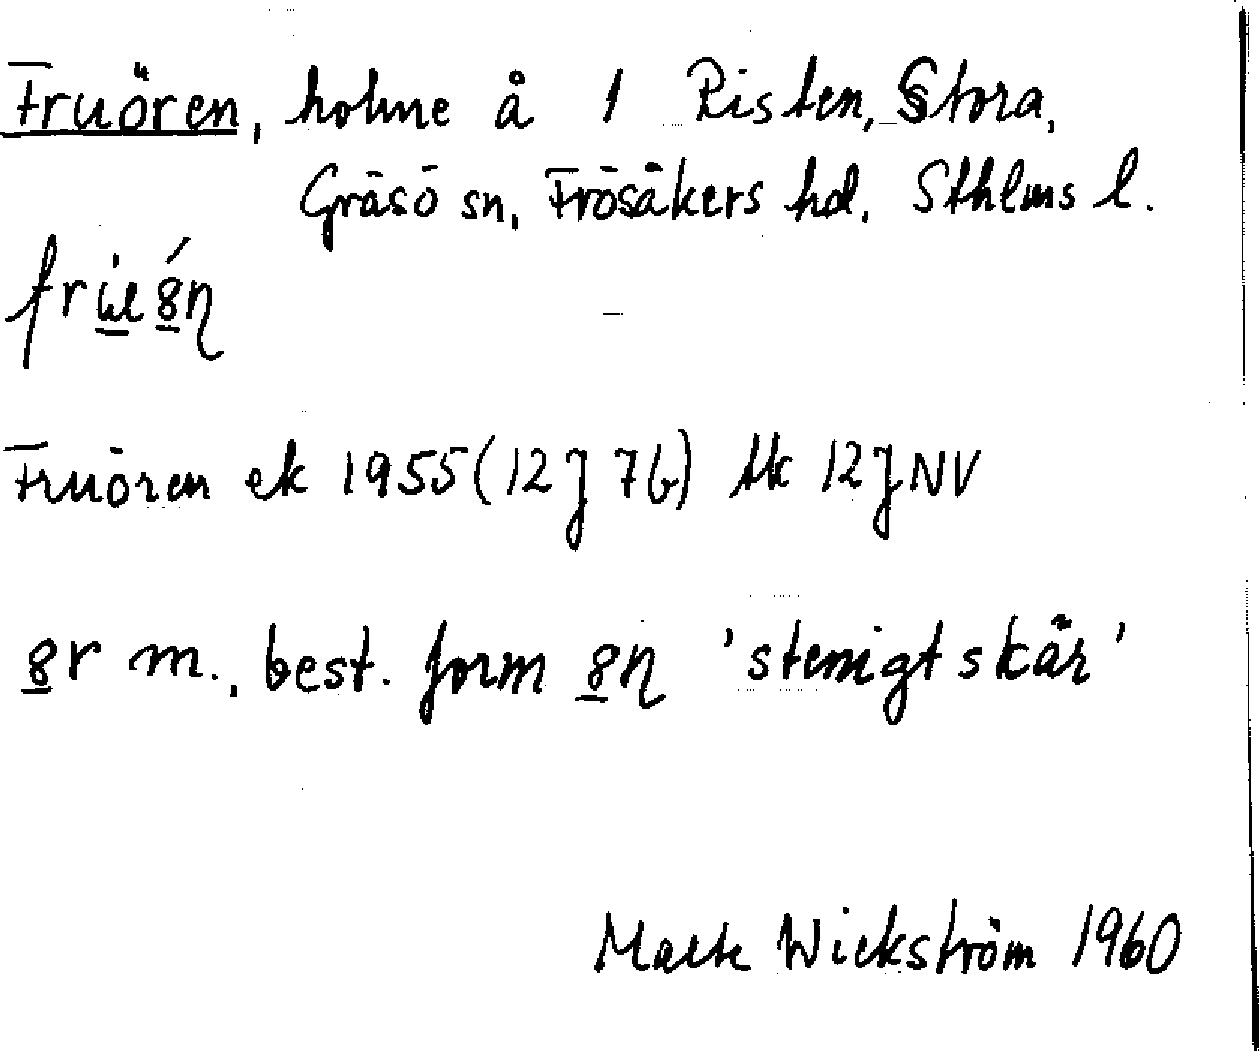 Fruören, holme å 1 Risten, Stora,
Gräsö sn, Frösåkers hd, Sthlms l.
Fruören ek 1955 (12J 7b) tk 12J NV
8r m., best. form 8n 'stenigt skär'
Malte Wickström 1960